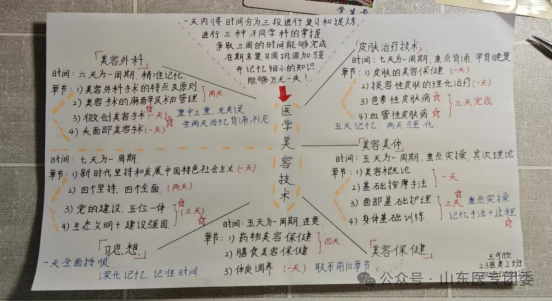 学生卡
一天内将时间分为三段进行复习和提炼
进行三种不同学科的掌握
争取三周的时间能够完成
在期末复习周巩固加强
并记忆细小的知识
能够万无一失!
医学美容技术
「美容外科」
时间:六天为一周期,精准记忆
章节:1)美容外科手术的特点及原则
2)美容手术的麻醉学术和管理
(两天)
3)微创美容手术(一天)
4)头面部美容手术(一天)
重中之重,无末足
余两天回忆背诵补充
时间:七天为一周期
章节:1)新时代坚持和发展中国特色社会主义(一天)
2)四个坚持,四个全面,(两天)
3)党的建设,五位一体
4)生态文明+建设强国
(三天)
「习思想」
一天全面捋顺
深化记忆,记准时间
皮肤治疗技术」
时间:七天为一周期,重点背诵,早背晚复
章节:1)皮肤的美容保健(一天)
2)损容性皮肤的理化治疗(一天)
3)色素性皮肤病
4)血管性皮肤病
三天完成
五天记忆,两天强化
「美容美体」
时间:五天为一周期,重点实操,其次理论
章节:1)美容概论
2)基础按摩手法
一天
3)面部基础护理
4)身体基础训练
三天
重点实操
记忆手法+过程
「美容保健」
时间:五天为一周期,速爽
章节:1)药物美容保健
2)膳食美容保健
四天
3)体质调养(一天)
联系前后章节
公众号·山东医专团委